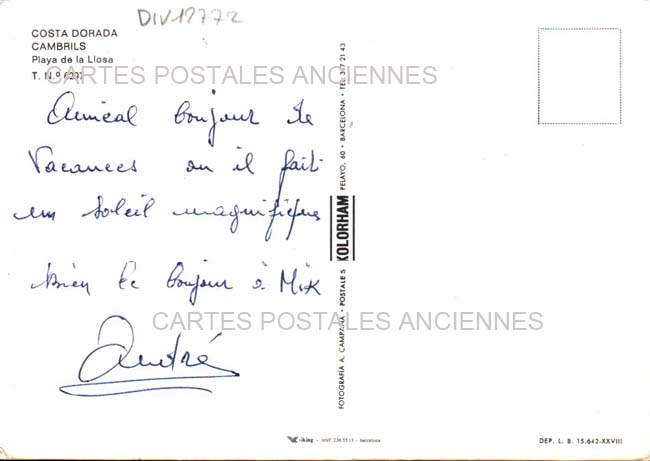 DIV12772
COSTA DORADA
CAMBRILS
Playa de la Llosa
T. N.º 6297
CARTES POSTALES ANCIENNES
Amical bonjour de
Vacances ou il fait
un soleil magnifique
bien le bonjour à Mik
André
CARTES POSTALES ANCIENNES
FOTOGRAFIA A. CAMPAÑA • POSTALES KOLORHAM PELAYO, 60 • BARCELONA • TEL. 317 21 43
viking - barcelona
DEP. L. B. 15.642-XXVIII